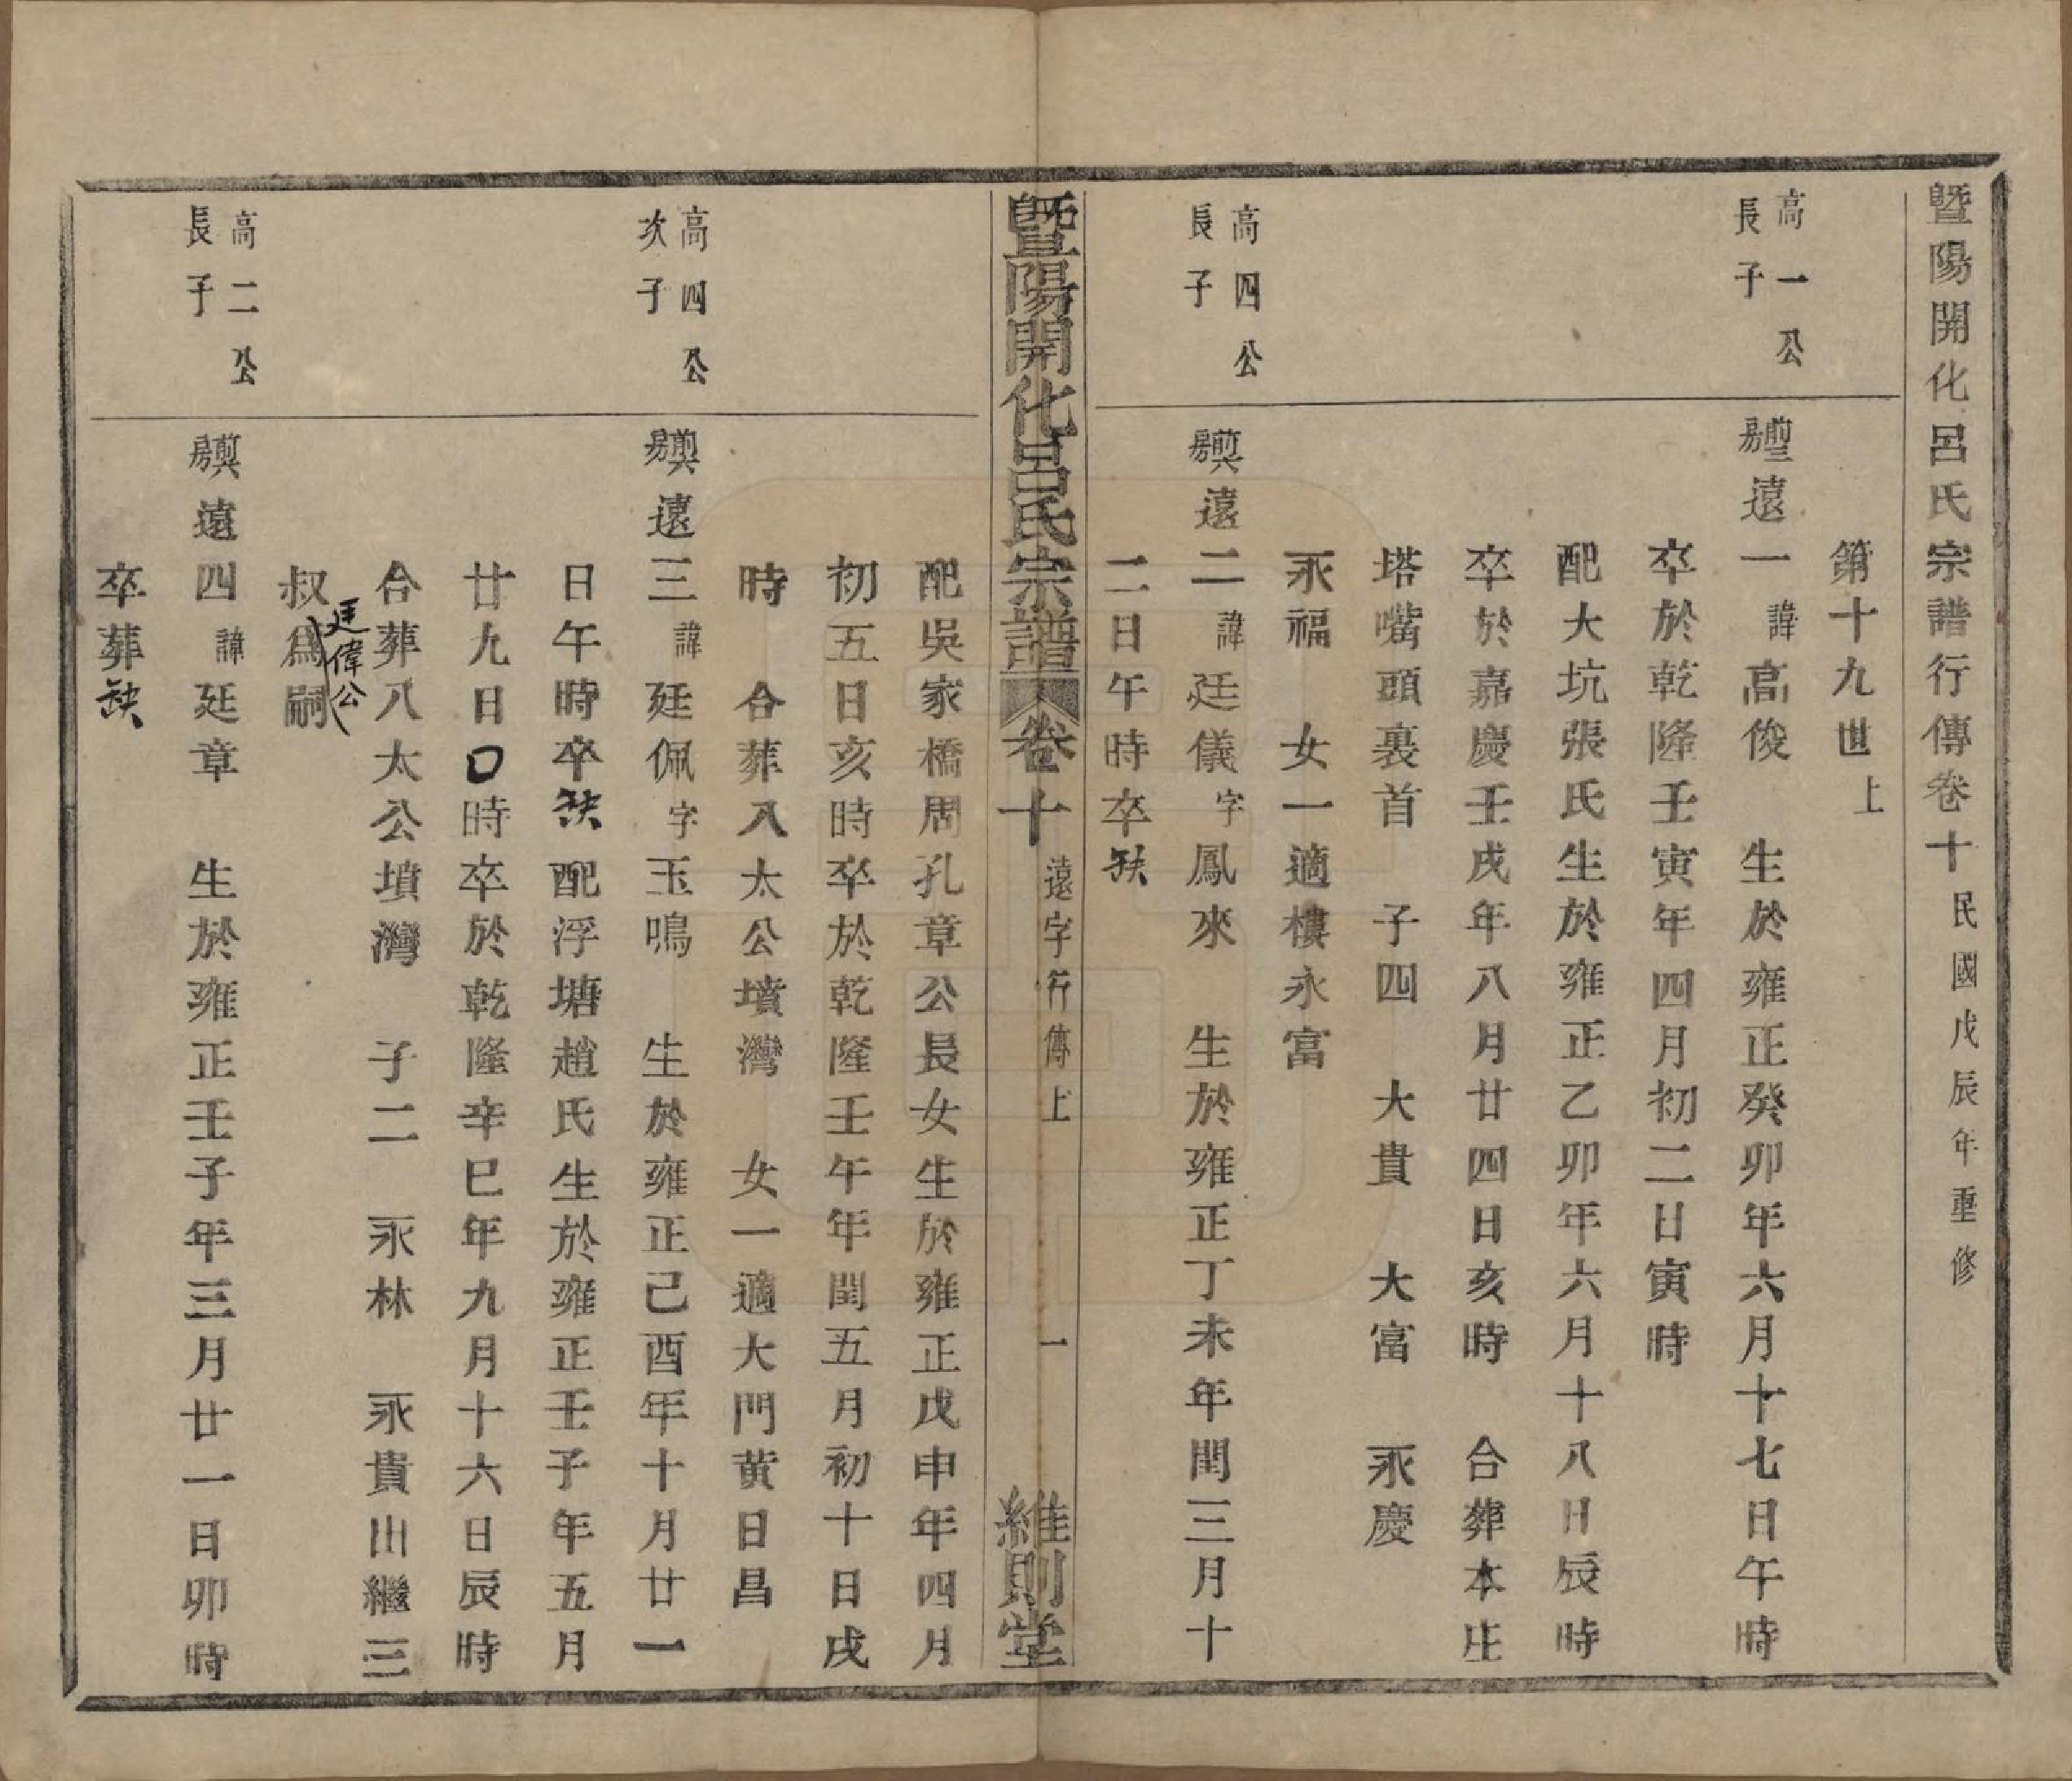 暨陽開化呂氏宗譜行傳卷十 民國戊辰年重修
第十九世上
高一公
長子
房 遠一 諱高俊 生於雍正癸卯年六月十七日午時
卒於乾隆壬寅年四月初二日寅時
配大坑張氏生於雍正乙卯年六月十八日辰時
卒於嘉慶壬戌年八月廿四日亥時 合葬本庄
塔嘴頭裏首 子四 大貴 大富 永慶
永福 女一適樓永富
高四公
長子
房 遠二 諱廷儀 字鳳來 生於雍正丁未年閏三月十
二日午時卒缺
暨陽開化呂氏宗譜 卷十 遠字行傳上 一 維則堂
配吳家橋周孔章公長女生於雍正戊申年四月
初五日亥時卒於乾隆壬午年閏五月初十日戌
時 合葬八太公墳灣 女一適大門黃日昌
高四公
次子
房 遠三 諱廷佩 字玉鳴 生於雍正己酉年十月廿一
日午時卒缺配浮塘趙氏生於雍正壬子年五月
廿九日口時卒於乾隆辛巳年九月十六日辰時
合葬八太公墳灣 子二 永林 永貴出繼三
叔廷偉公爲嗣
高二公
長子
房 遠四 諱廷章 生於雍正壬子年三月廿一日卯時
卒葬缺